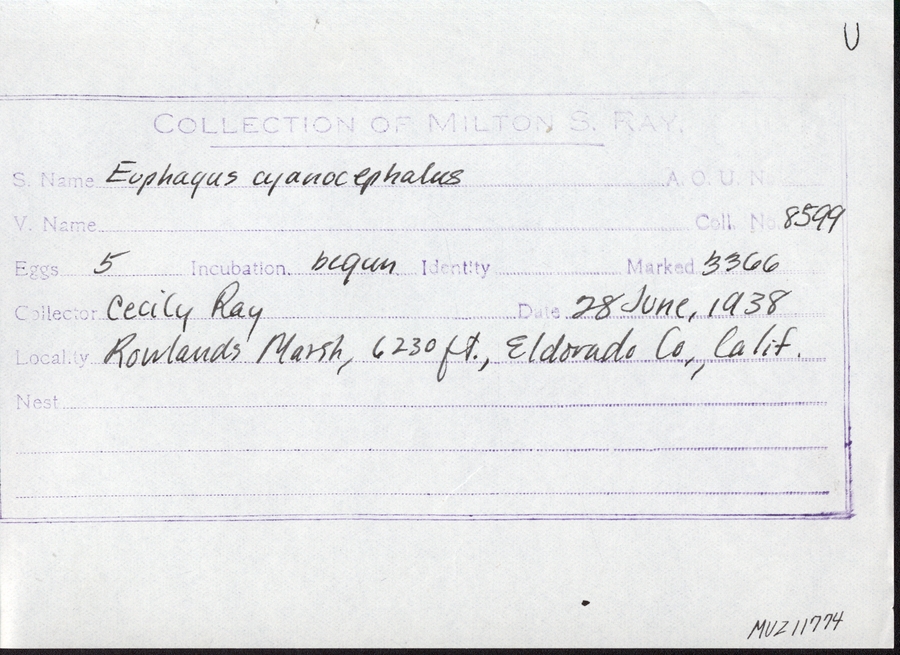 U
COLLECTION OF MILTON S. RAY.
S. Name Euphagus cyanocephalus A. O. U. N.
V. Name Coll. No. 8599
Eggs 5 Incubation begun Identity Marked 3366
Collector Cecily Ray Date 28 June, 1938
Locality Rowlands Marsh, 6230 ft., Eldorado Co., Calif.
Nest
MVZ 11774